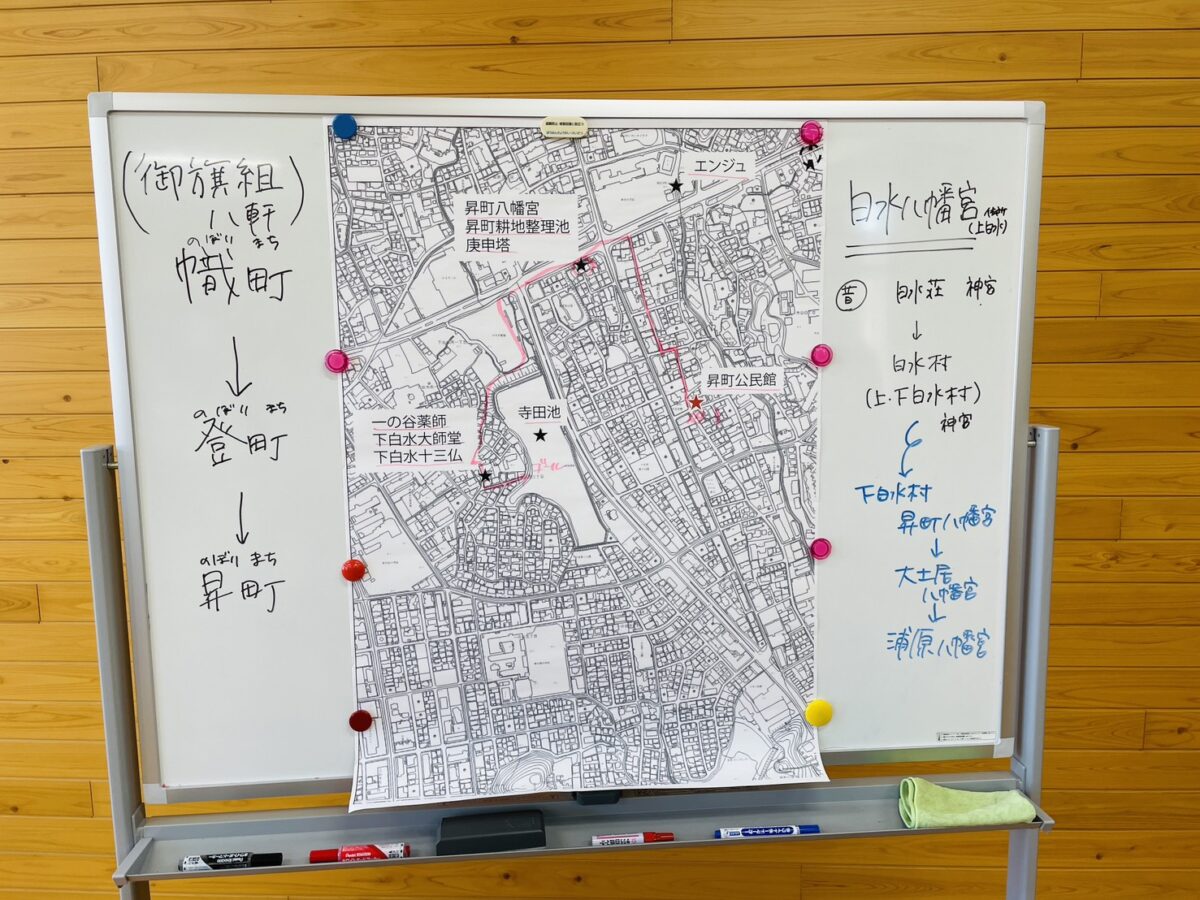 (御旗組
八軒)
のぼり まち
幟町
↓
のぼり まち
登町
↓
のぼり まち
昇町
エンジュ
昇町八幡宮
昇町耕地整理池
庚申塔
昇町公民館
寺田池
一の谷薬師
下白水大師堂
下白水十三仏
ゴール
白水八幡宮
(上白水)
昔 白水荘 神宮
↓
白水村
(上・下白水村)
神宮
↓
下白水村
昇町八幡宮
↓
大土居
八幡宮
↓
浦原八幡宮